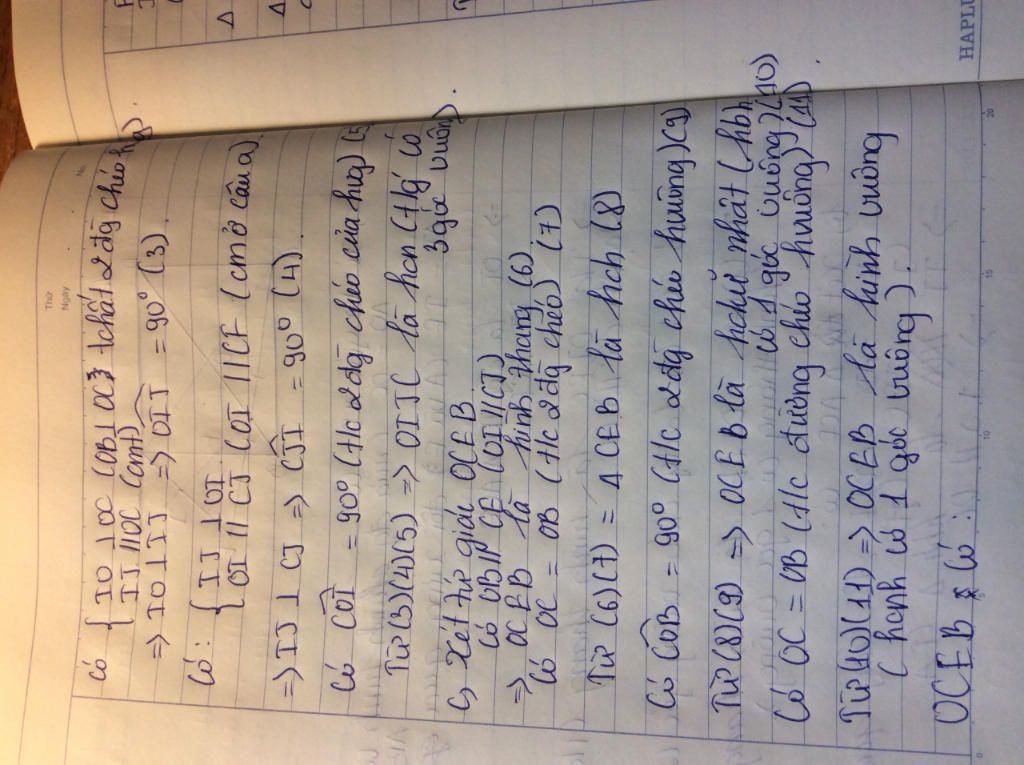 No.
Thứ
Ngày
Có { IO ⊥ OC (OB ⊥ OC) tchất 2 đg chéo hvg).
IJ // OC (cmt)
=> IO ⊥ IJ => OIJ = 90° (3).
Có: { IJ ⊥ OI
OI // CJ (OI // CF (cm ở câu a)
=> IJ ⊥ CJ => CJI = 90° (4)
Có COI = 90° (t/c 2 đg chéo của hvg) (5
Từ (3)(4)(5) => OIJC là hcn (tgiác có
3 góc vuông).
c, Xét tứ giác OCEB
có OB // CE (OI // CJ)
=> OCEB là hình thang (6)
Có OC = OB (t/c 2 đg chéo) (7)
Từ (6)(7) = Δ CEB là hch (8)
Có COB = 90° (t/c 2 đg chéo hvuông)(9)
Từ (8)(9) => OCEB là hchữ nhật (hbh
có 1 góc vuông) (10)
Có OC = OB (t/c đường chéo hvuông) (11)
Từ (10)(11) => OCEB là hình vuông
(hcnh có 1 góc vuông).
OCEB có:
HAPLU